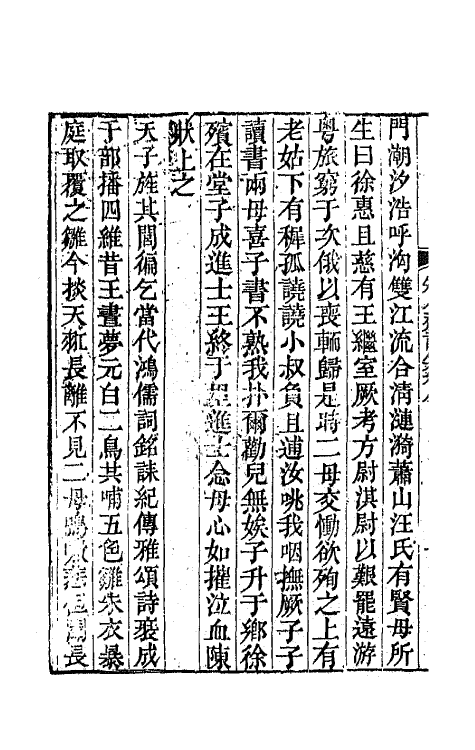 門潮汐浩呼洶雙江流合清漣漪蕭山汪氏有賢母所
生曰徐惠且慈有王繼室厥考方尉淇尉以艱罷遠游
粵旅窮于次俄以喪輀歸是時二母交慟欲殉之上有
老姑下有穉孤譊譊小叔負且逋汝咷我咽撫厥子子
讀書兩母喜子書不熟我扑爾勸兒無娭子升于鄉徐
殯在堂子成進士王終于進士念母心如摧泣血陳
獻上之
天子旌其閭徧乞當代鴻儒詞銘誄紀傳雅頌詩裒成
于部播四維昔王晝夢元白二鳥共哺五色雛朱衣暴
庭取覆之雛今掞天羾長離不見二母長